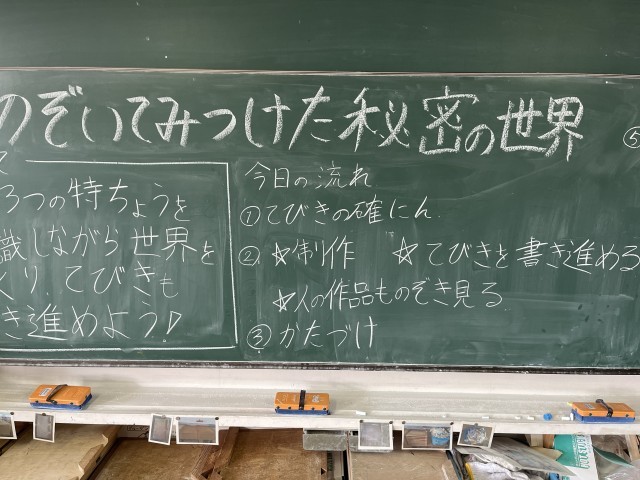 のぞいてみつけた秘密の世界
⑤
て
3つの特ちょうを
識しながら世界を
くり、てびきも
き進めよう♪
今日の流れ
①てびきの確にん
②☆制作 ☆てびきを書き進める
☆人の作品ものぞき見る
③かたづけ